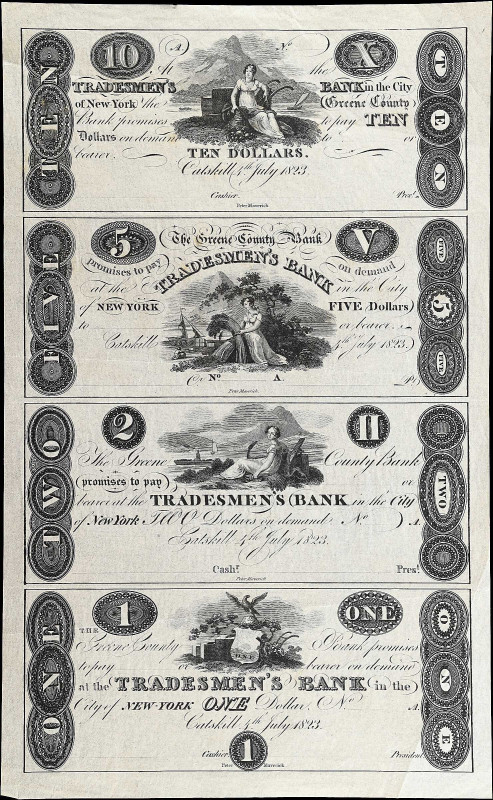 10 (A) No. X
TEN At the TEN
TRADESMEN'S BANK in the City
of New York the (Greene County
Bank promises to pay TEN
Dollars on demand to or
bearer.
TEN DOLLARS.
Catskill, 4th July 1823.
Cashier. Prest.
Peter Maverick
5 The Greene County Bank V
FIVE promises to pay on demand FIVE 5 FIVE
TRADESMEN'S BANK
at the in the City
of NEW YORK FIVE (Dollars)
to or bearer.
Catskill 4th July 1823.)
No A. P
Peter Maverick
2 II
TWO The Greene County Bank TWO
(promises to pay) or
bearer at the TRADESMEN'S (BANK in the City
of New York TWO Dollars on demand No ) A.
Catskill 4th July 1823.
Cash.r Pres.t
Peter Maverick
1 ONE
ONE THE ONE
Greene County Bank promises
to pay or bearer on demand
at the TRADESMEN'S BANK (in the)
City of NEW-YORK ONE Dollar, No A.
Catskill 4th July 1823.
Cashier 1 President
Peter Maverick